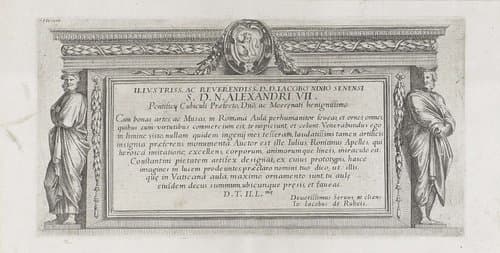 ILLVSTRISS. AC REVERENDISS. D.D. IACOBO NINIO SENENSI
S. D. N. ALEXANDRI VII.
Pontificij Cubiculi Prefecto, Dño ac Mecenati benignissimo
Cum bonas artes ac Musas in Romana Aula perhumaniter foueas, et omnes omnes
quibus cum virtutibus commercium est, te suspiciunt, et colunt. Venerabundus ego
in limine sisto, nullam quidem ingenij mei tesseram, laudatissimi tamen artificis
insignia preferens monumenta. Auctor est ille Iulius Romanus Apelles, qui
heroica imitatione, excellens corporum, animorumque lineis, miraculo ea
Constantini pietatem artifex designat, ex cuius prototypis, hasce
imagines in lucem prodeuntes, preclaro nomini tuo dico, ut illi
que in Vaticana aula maximo ornamento sunt, tu aule
eiusdem decus summum, ubicunque presis, et faueas.
D. T. ILL.me
Deuotissimus Seruus et cliens
Io: Iacobus de Rubeis.